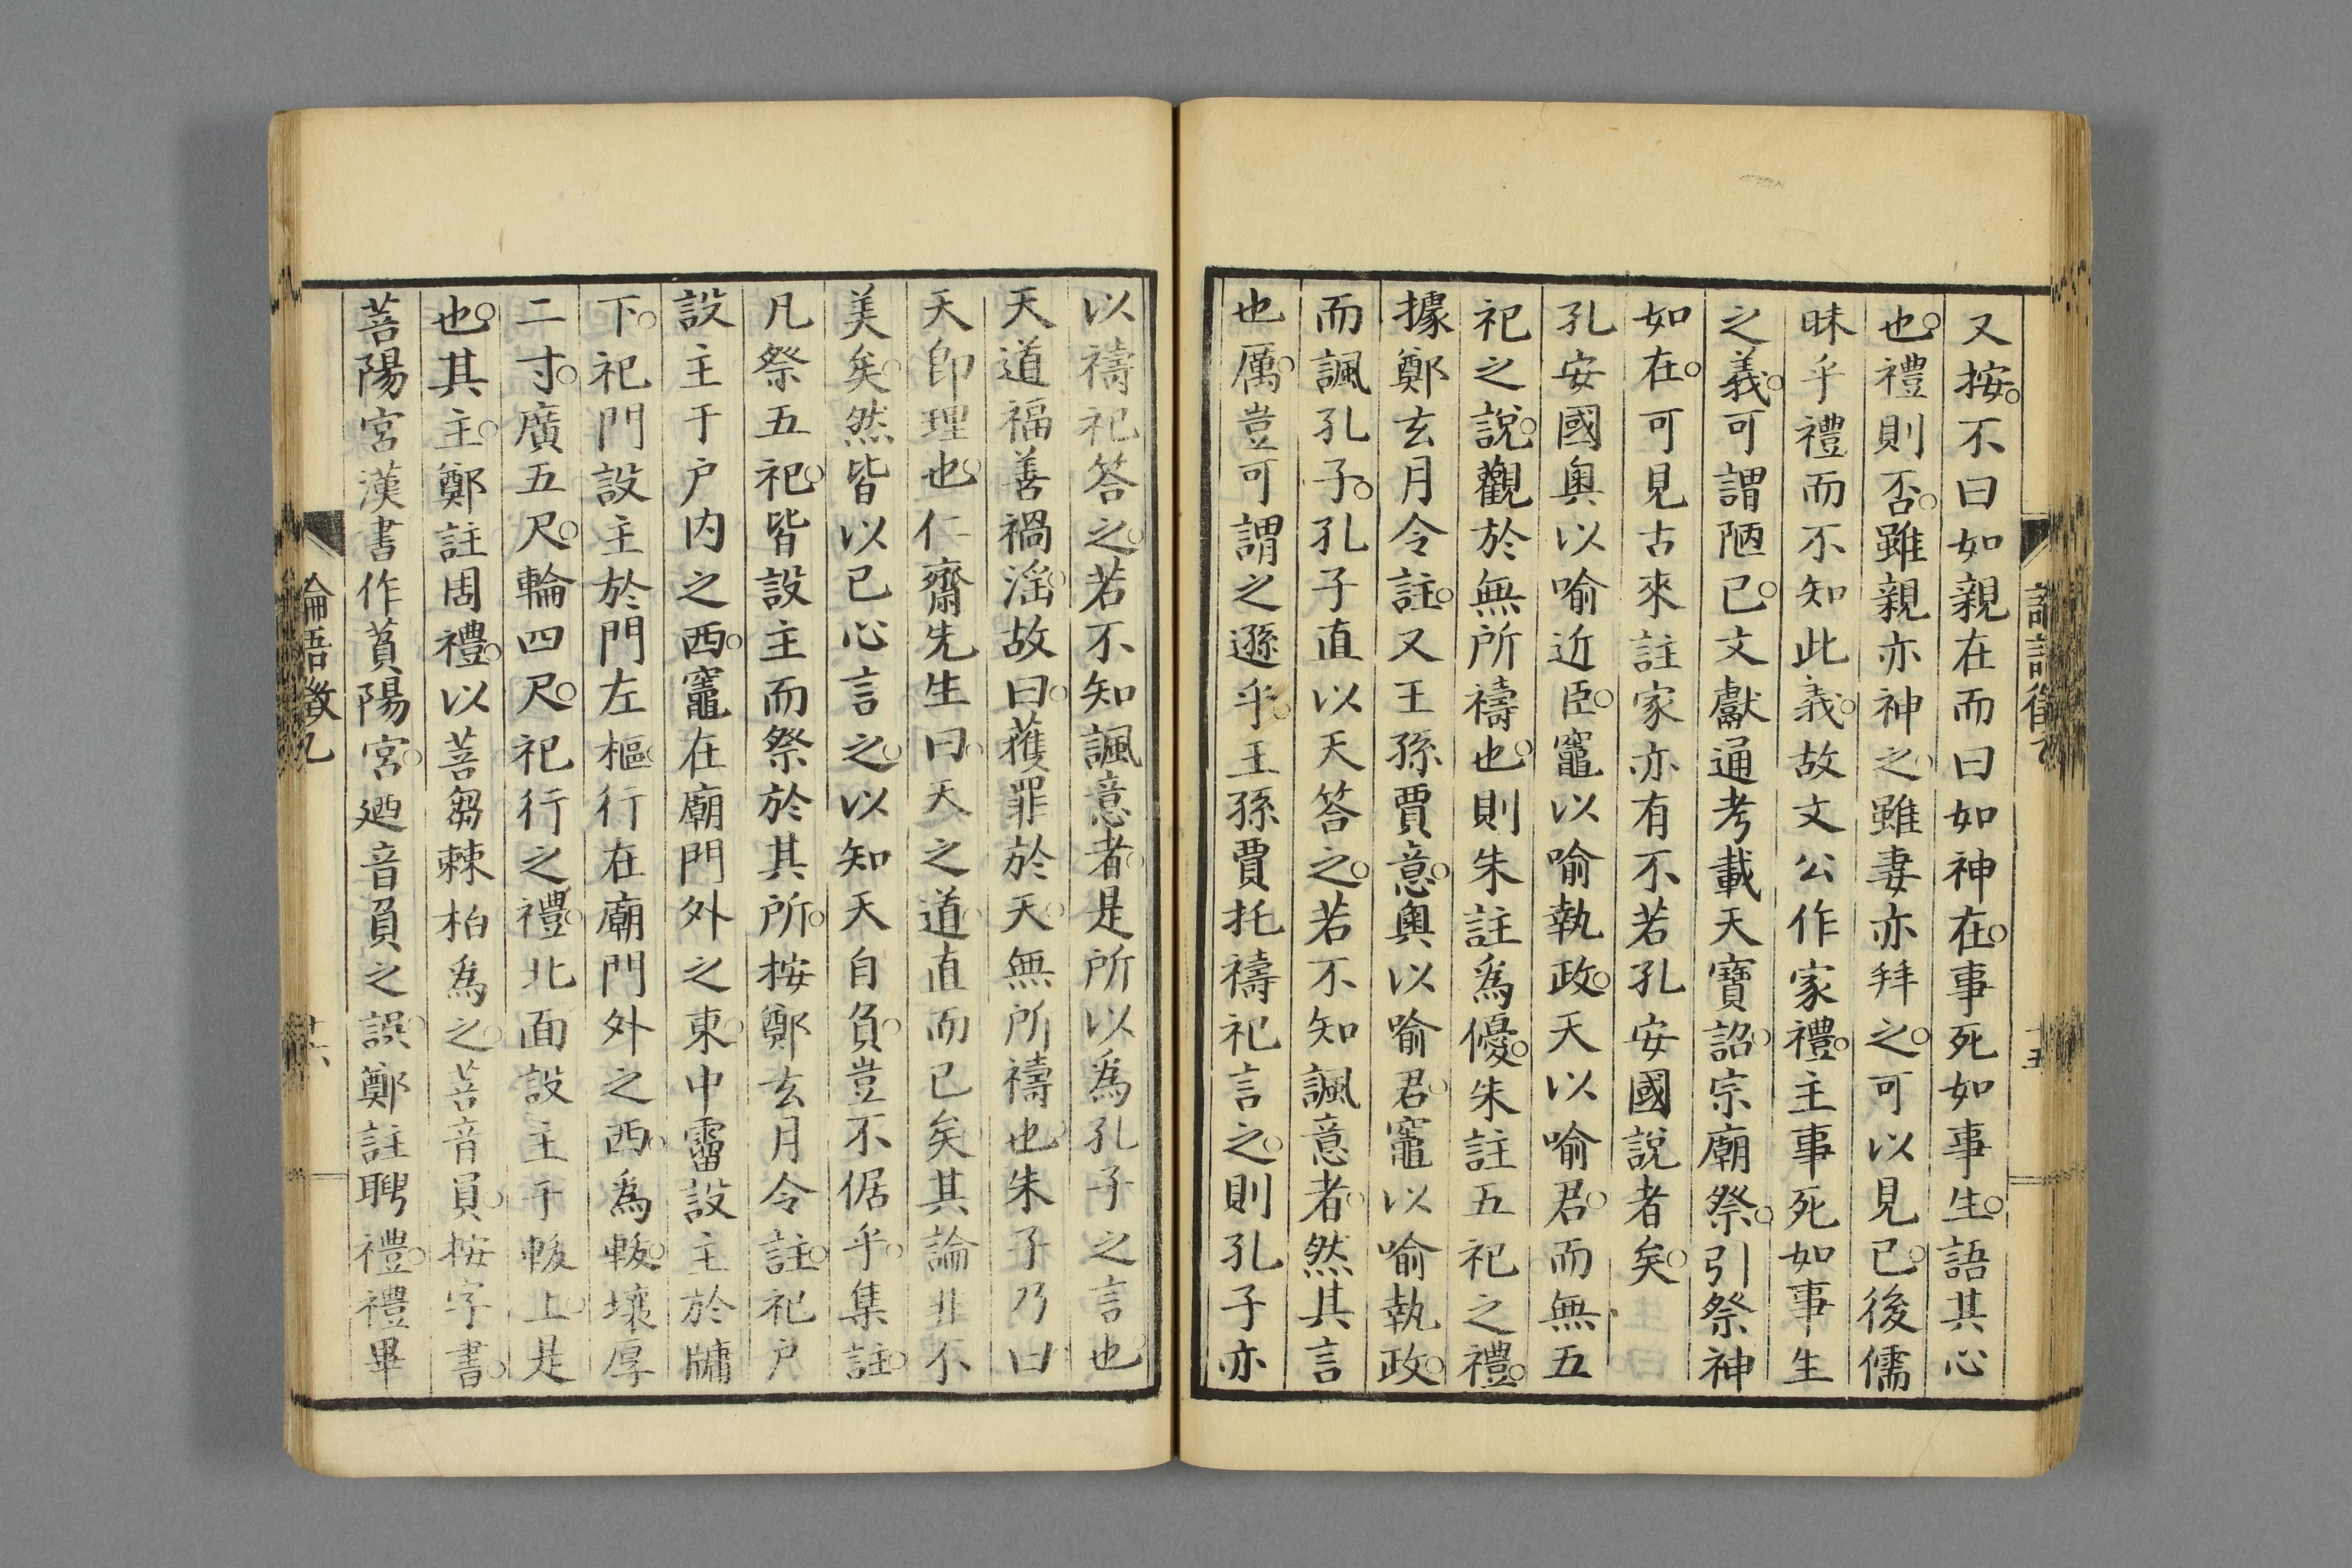 又按。不曰如親在而曰如神在。事死如事生。語其心
也。禮則否。雖親亦神之。雖妻亦拜之。可以見已。後儒
昧乎禮而不知此義。故文公作家禮。主事死如事生
之義。可謂陋已。文獻通考載天寶詔。宗廟祭。引祭神
如在。可見古來註家亦有不若孔安國說者矣。
孔安國奧以喻近臣。竈以喻執政。天以喻君。而無五
祀之說。觀於無所禱也。則朱註爲優。朱註五祀之禮。
據鄭玄月令註。又王孫賈意。奧以喻君。竈以喻執政。
而諷孔子。孔子直以天答之。若不知諷意者。然其言
也厲。豈可謂之遜乎。王孫賈托禱祀言之。則孔子亦
以禱祀答之。若不知諷意者。是所以爲孔子之言也。
天道福善禍淫。故曰。獲罪於天。無所禱也。朱子乃曰
天卽理也。仁齋先生曰。天之道。直而已矣。其論非不
美矣。然皆以己心言之。以知天自負。豈不倨乎。集註。
凡祭五祀。皆設主而祭於其所。按鄭玄月令註。祀戶
設主于戶内之西。竈在廟門外之東。中霤設主於牖
下。祀門設主於門左樞。行在廟門外之西。爲軷。壤厚
二寸。廣五尺。輪四尺。祀行之禮。北面設主于軷上。是
也。其主。鄭註周禮。以菩芻棘柏爲之。菩音負。按字書。
萯陽宮漢書作萯陽宮。廼音負之誤。鄭註聘禮。禮畢
論語徵乙
十五